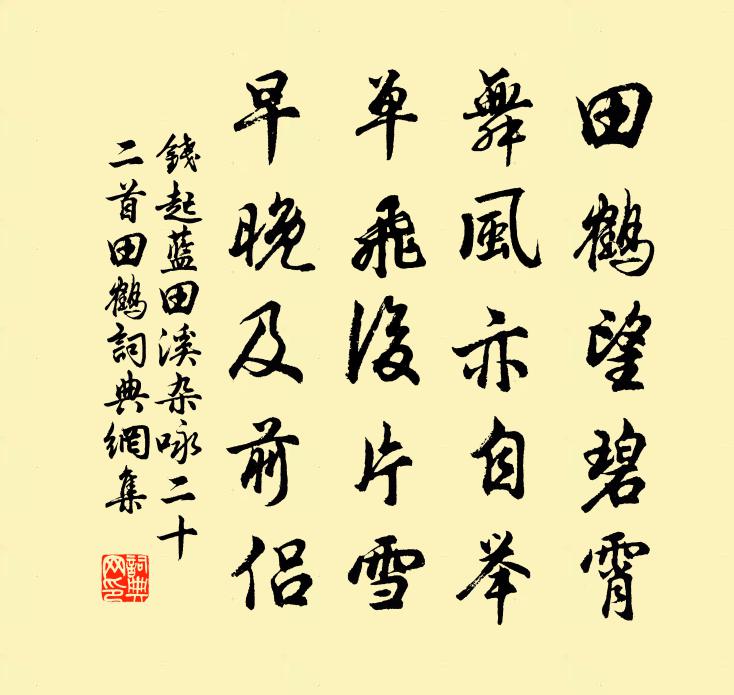 田鶴望碧霄
舞風亦自举
单飛後片雪
早晚及前侣
錢起藍田溪杂咏二十
二首田鶴詞典網集
詞典
网印